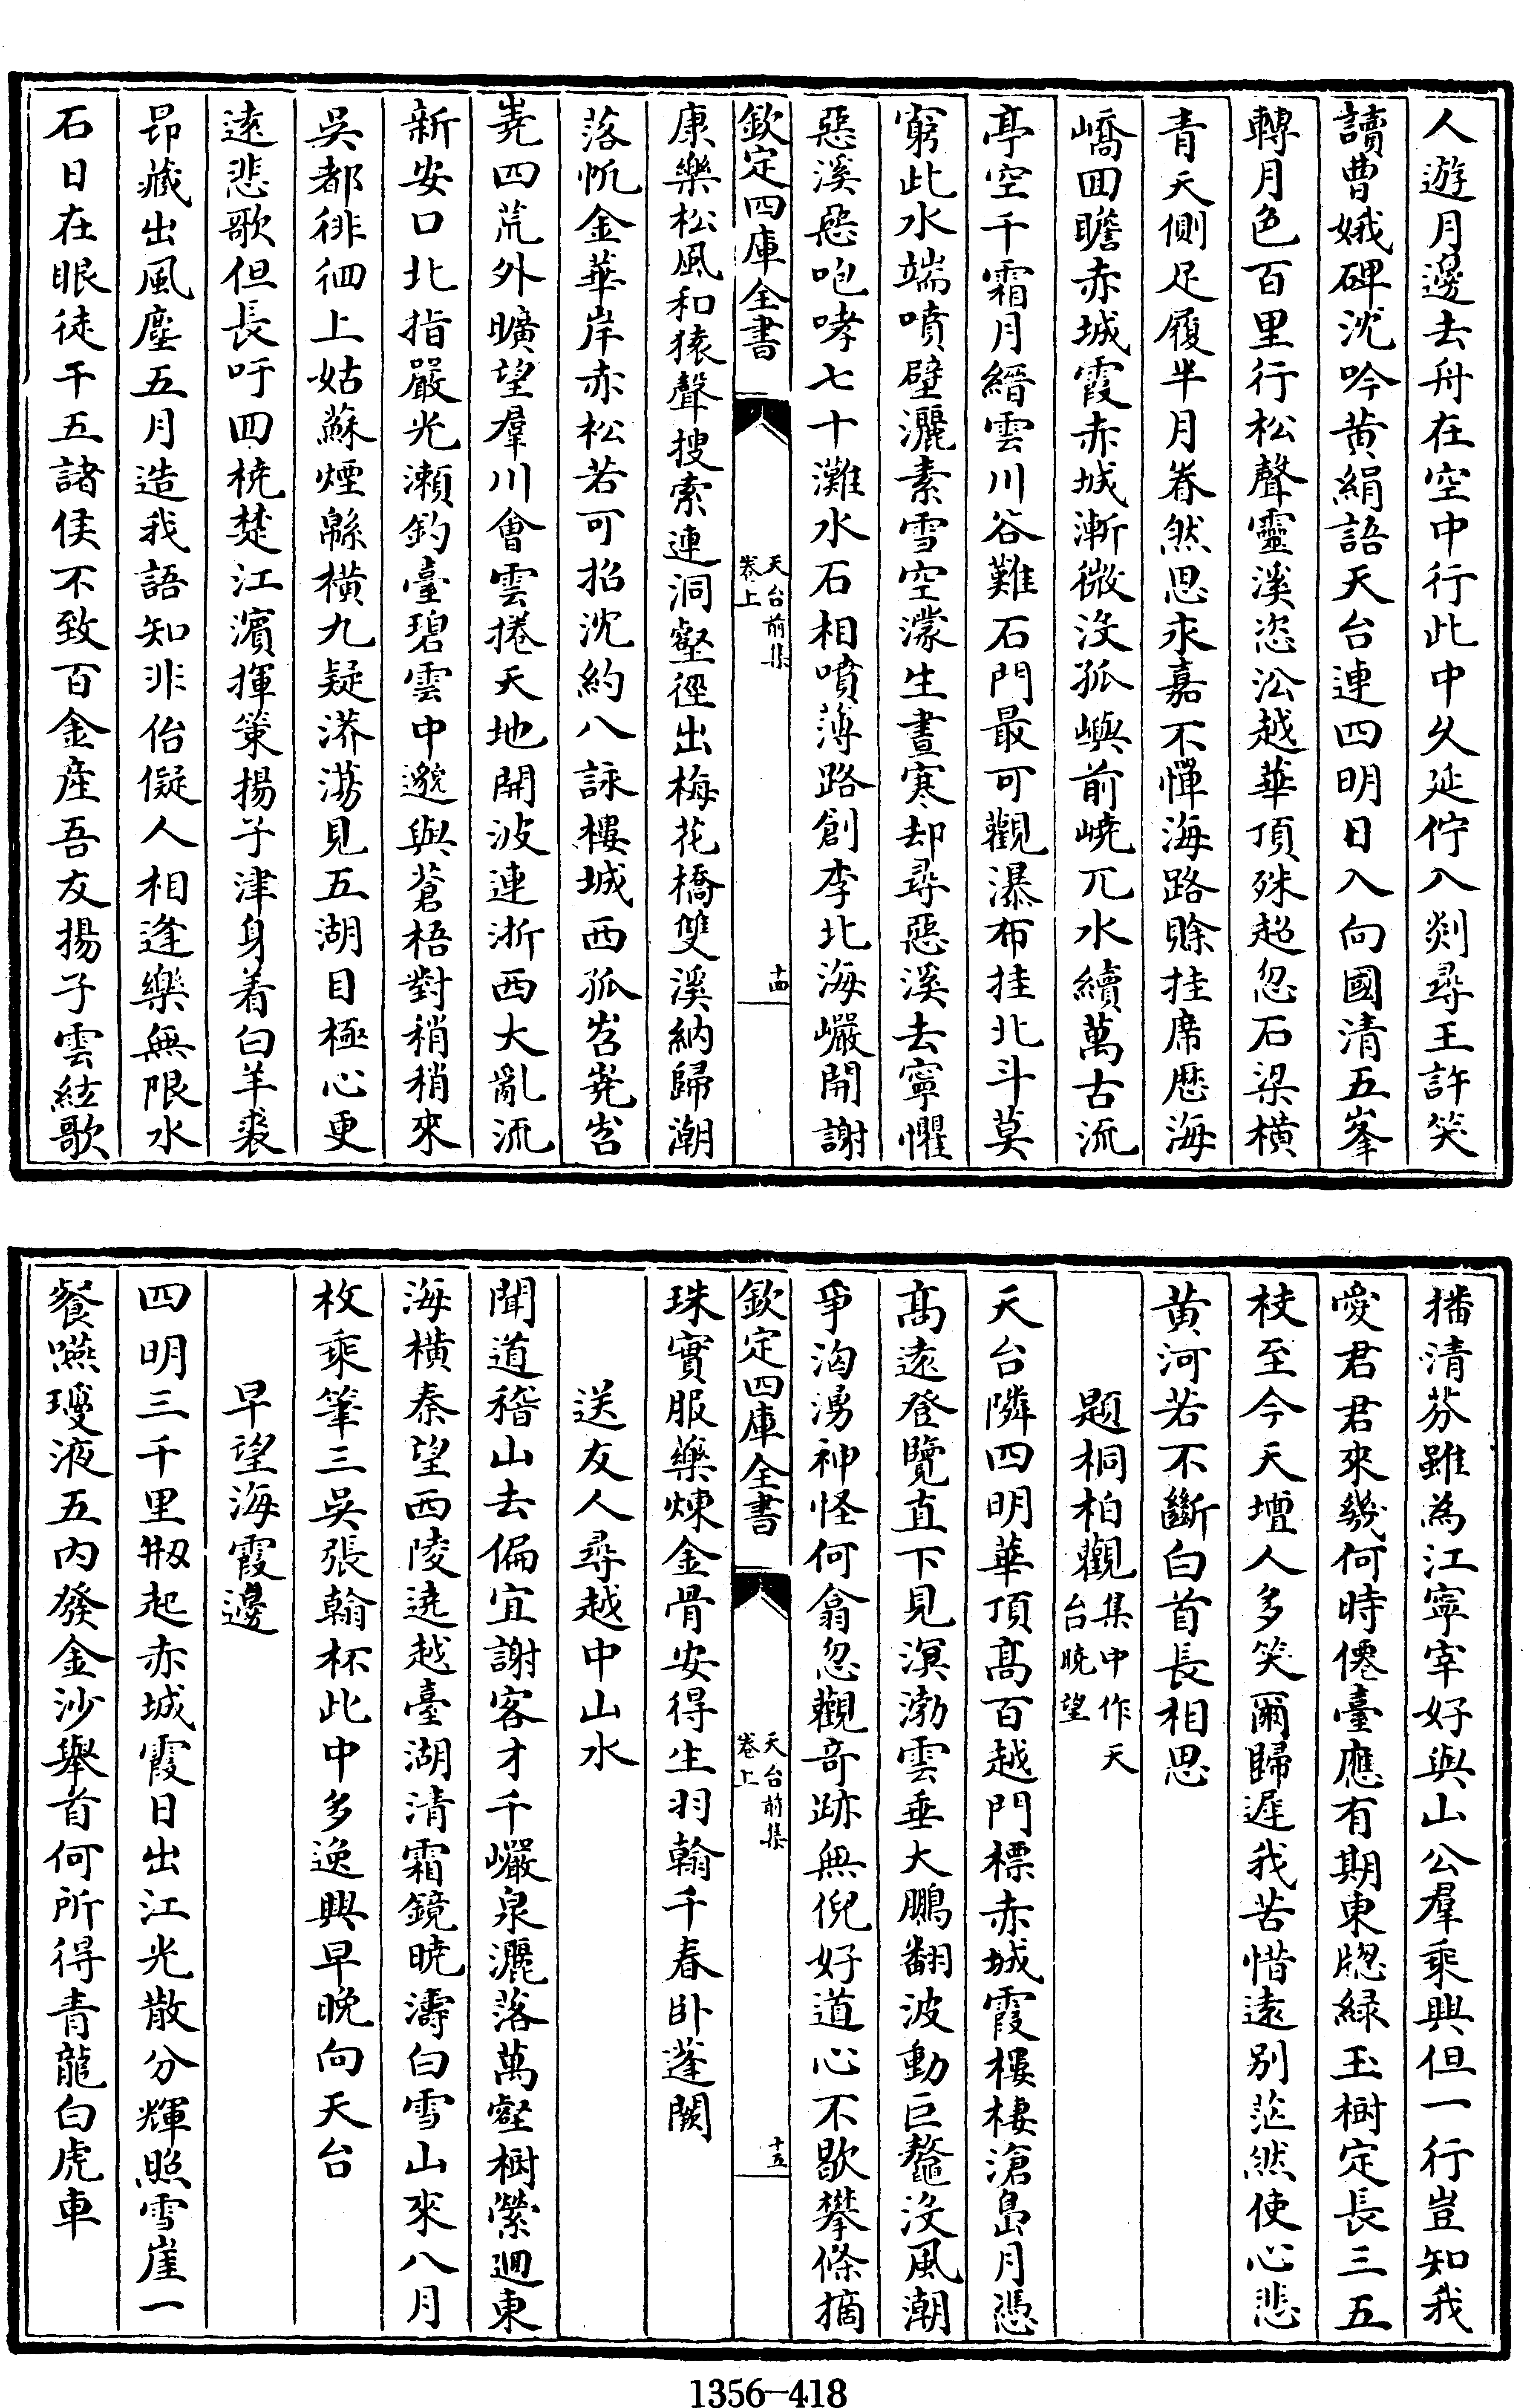 人遊月邊去舟在空中行此中久延佇入剡尋王許笑
讀曹娥碑沈吟黄絹語天台連四明日入向國清五峯
轉月色百里行松聲靈溪恣沿越華頂殊超忽石梁橫
青天側足履半月眷然思永嘉不憚海路賖挂席歴海
嶠囬瞻赤城霞赤城漸微没孤嶼前嶢兀水續萬古流
亭空千霜月縉雲川谷難石門最可觀瀑布挂北斗莫
窮此水端噴壁灑素雪空濛生晝寒却尋惡溪去寧懼
惡溪惡咆哮七十灘水石相噴薄路創李北海巖開謝
欽定四庫全書
天台前集
卷上
十四
康樂松風和猿聲搜索連洞壑徑出梅花橋雙溪納歸潮
落帆金華岸赤松若可招沈約八詠樓城西孤岧嶤岧
嶤四荒外曠望羣川會雲捲天地開波連浙西大亂流
新安口北指嚴光瀨釣臺碧雲中邈與蒼梧對稍稍來
吳都徘徊上姑蘇煙緜橫九疑漭蕩見五湖目極心更
遠悲歌但長吁囬橈楚江濱揮策揚子津身着白羊裘
昻藏出風塵五月造我語知非佁儗人相逢樂無限水
石日在眼徒干五諸侯不致百金産吾友揚子雲絃歌
播清芬雖為江寧宰好與山公羣乘興但一行豈知我
愛君君來幾何時僊臺應有期東牕緑玉樹定長三五
枝至今天壇人多笑爾歸遲我苦惜遠别茫然使心悲
黄河若不斷白首長相思
題桐柏觀集中作天
台曉望
天台隣四明華頂高百越門標赤城霞樓棲滄島月憑
高遠登覽直下見溟渤雲垂大鵬翻波動巨鼇没風潮
爭洶湧神怪何翕忽觀奇跡無倪好道心不歇攀條摘
欽定四庫全書
天台前集
卷上
十五
珠實服藥煉金骨安得生羽翰千春卧蓬闕
送友人尋越中山水
聞道稽山去偏宜謝客才千巖泉灑落萬壑樹縈廻東
海橫秦望西陵遶越臺湖清霜鏡曉濤白雪山來八月
枚乘筆三吳張翰杯此中多逸興早晚向天台
早望海霞邊
四明三千里刱起赤城霞日出江光散分輝照雪崖一
餐嚥瓊液五内發金沙舉首何所得青龍白虎車
1356-418